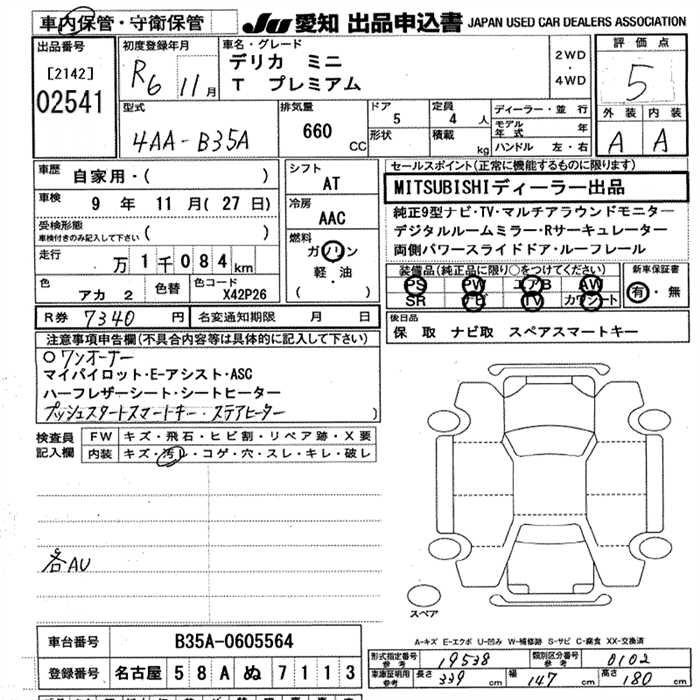 車内保管・守衛保管 JU 愛知 出品申込書 JAPAN USED CAR DEALERS ASSOCIATION
出品番号
[2142]
02541
初度登録年月
R6 11月
車名・グレード
デリカ ミニ
T プレミアム
2WD
・
4WD
評価点
5
外装 内装
A A
型式
4AA-B35A
排気量
660 CC
ドア
5
形状
定員
4 人
積載 kg
ディーラー・並行
モデル年式 年
ハンドル 左・右
車歴
自家用・( )
車検 9 年 11 月 (27 日)
受検形態
車検付きのみ記入して下さい ( )
走行 万 1 千 084 km
色 アカ 2 色替 色コード X42P26
シフト
AT
冷房
AAC
燃料
ガソリン
軽・油
( )
セールスポイント(正常に機能するものに限ります)
MITSUBISHIディーラー出品
純正9型ナビ・TV・マルチアラウンドモニター
デジタルルームミラー・Rサーキュレーター
両側パワースライドドア・ルーフレール
装備品(純正品に限り○をつけてください)
PS PW エアB AW
SR ナビ TV カワシート
新車保証書
有・無
R券 7340 円 名変通知期限 月 日
後日品
保 取 ナビ取 スペアスマートキー
注意事項申告欄(不具合内容等は具体的に記入して下さい)
○ワンオーナー
マイパイロット・E-アシスト・ASC
ハーフレザーシート・シートヒーター
プッシュスタートスマートキー・ステアヒーター )
検査員
記入欄
FW キズ・飛石・ヒビ割・リペア跡・X要
内装 キズ・汚レ・コゲ・穴・スレ・キレ・破レ
各AU
スペア
車台番号 B35A-0605564
登録番号 名古屋 5 8 A ぬ 7 1 1 3
A-キズ E-エクボ U-凹み W-補修跡 S-サビ C-腐食 XX-交換済
形式指定番号 参考 19538 類別区分番号 参考 0102
車庫証明用 参考 長さ 339 cm 幅 147 cm 高さ 180 cm